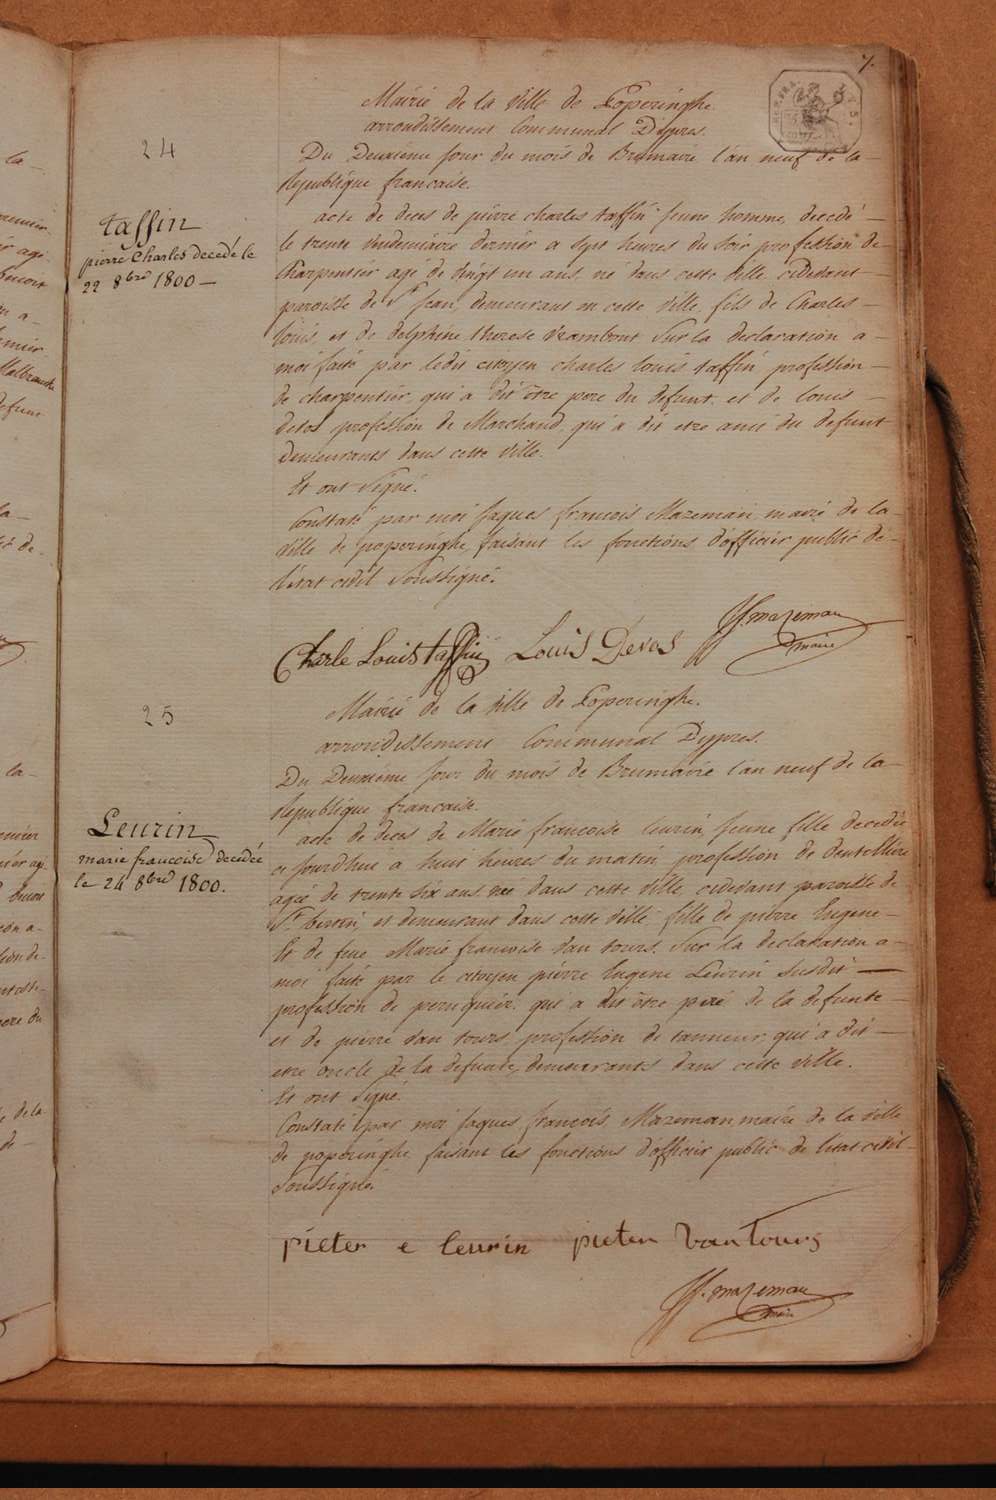 7.
Mairie de la ville de Poperinghe
arrondissement Communal D'ypres.
24
Du Deuxiéme jour du mois de Brumaire l'an neuf de la
Republique francaise.
taffin
pierre Charles decedé le
22 8bre 1800
acte de deces de pierre charles taffin jeune homme, decedé
le trente Vendemiaire dernier a sept heures du soir profession de
Charpentier agé de vingt un ans, né dans cette ville cidevant
paroisse de St jean, demeurant en cette ville, fils de Charles
louis, et de delphine therese Sur la declaration a
moi faite par ledit citoyen charles louis taffin profession
de charpentier, qui a dit être pere du defunt, et de louis
devos profession de Marchand, qui a dit etre ami du defunt
Demeurants dans cette ville.
Et ont Signé.
Constaté par moi jaques francois Mazeman maire de la
Ville de poperinghe, faisant les fonctions d'officier public de
l'état civil Soussigné.
JF. mazeman
maire
Charle Louis taffin Louis Devos
Mairie de la Ville de Poperinghe.
25
arrondissement Communal D'ypres.
Du Deuxiéme jour du mois de Brumaire l'an neuf de la
Republique francaise.
Leurin
marie francoise decedée
le 24 8bre 1800.
acte de deces de Marie francoise leurin, jeune fille decedée
ce jourdhui a huit heures du matin, profession de dentelliere
agée de trente six ans, née dans cette ville cidevant paroisse de
St bertin, et demeurant dans cette ville, fille de pierre Eugene
Et de feue Marie francoise Van tours, Sur la declaration a
moi faite par le citoyen pierre Eugene Leurin susdit
profession de peruquier, qui a dit être pere de la defunte
et de pierre van tours profession de tanneur, qui a dit
etre oncle de la defunte, demeurants dans cette ville.
Et ont Signé.
Constaté par moi jaques francois Mazeman maire de la ville
de poperinghe, faisant les fonctions d'officier public de l'etat civil
Soussigné.
pieter e leurin pieter Van Tours
JF. mazeman
maire